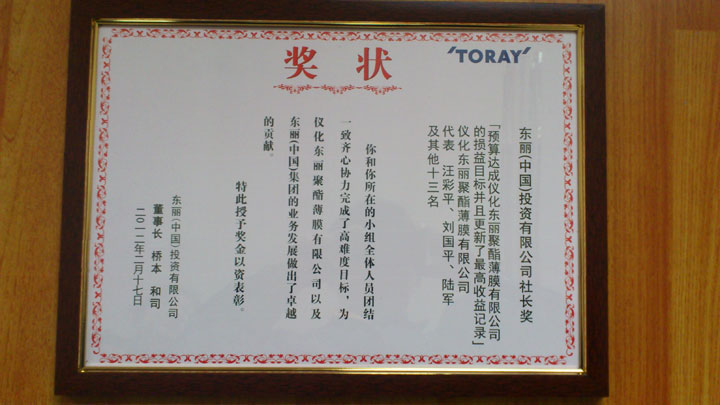 奖状
‘TORAY’
东丽(中国)投资有限公司社长奖
「预算达成仪化东丽聚酯薄膜有限公司
的损益目标并且更新了最高收益记录」
仪化东丽聚酯薄膜有限公司
代表 汪彩平、刘国平、陆军
及其他十三名
你和你所在的小组全体人员团结
一致齐心协力完成了高难度目标，为
仪化东丽聚酯薄膜有限公司以及
东丽(中国)集团的业务发展做出了卓越
的贡献。
特此授予奖金以资表彰。
东丽(中国)投资有限公司
董事长 桥本 和司
二〇一二年二月十七日